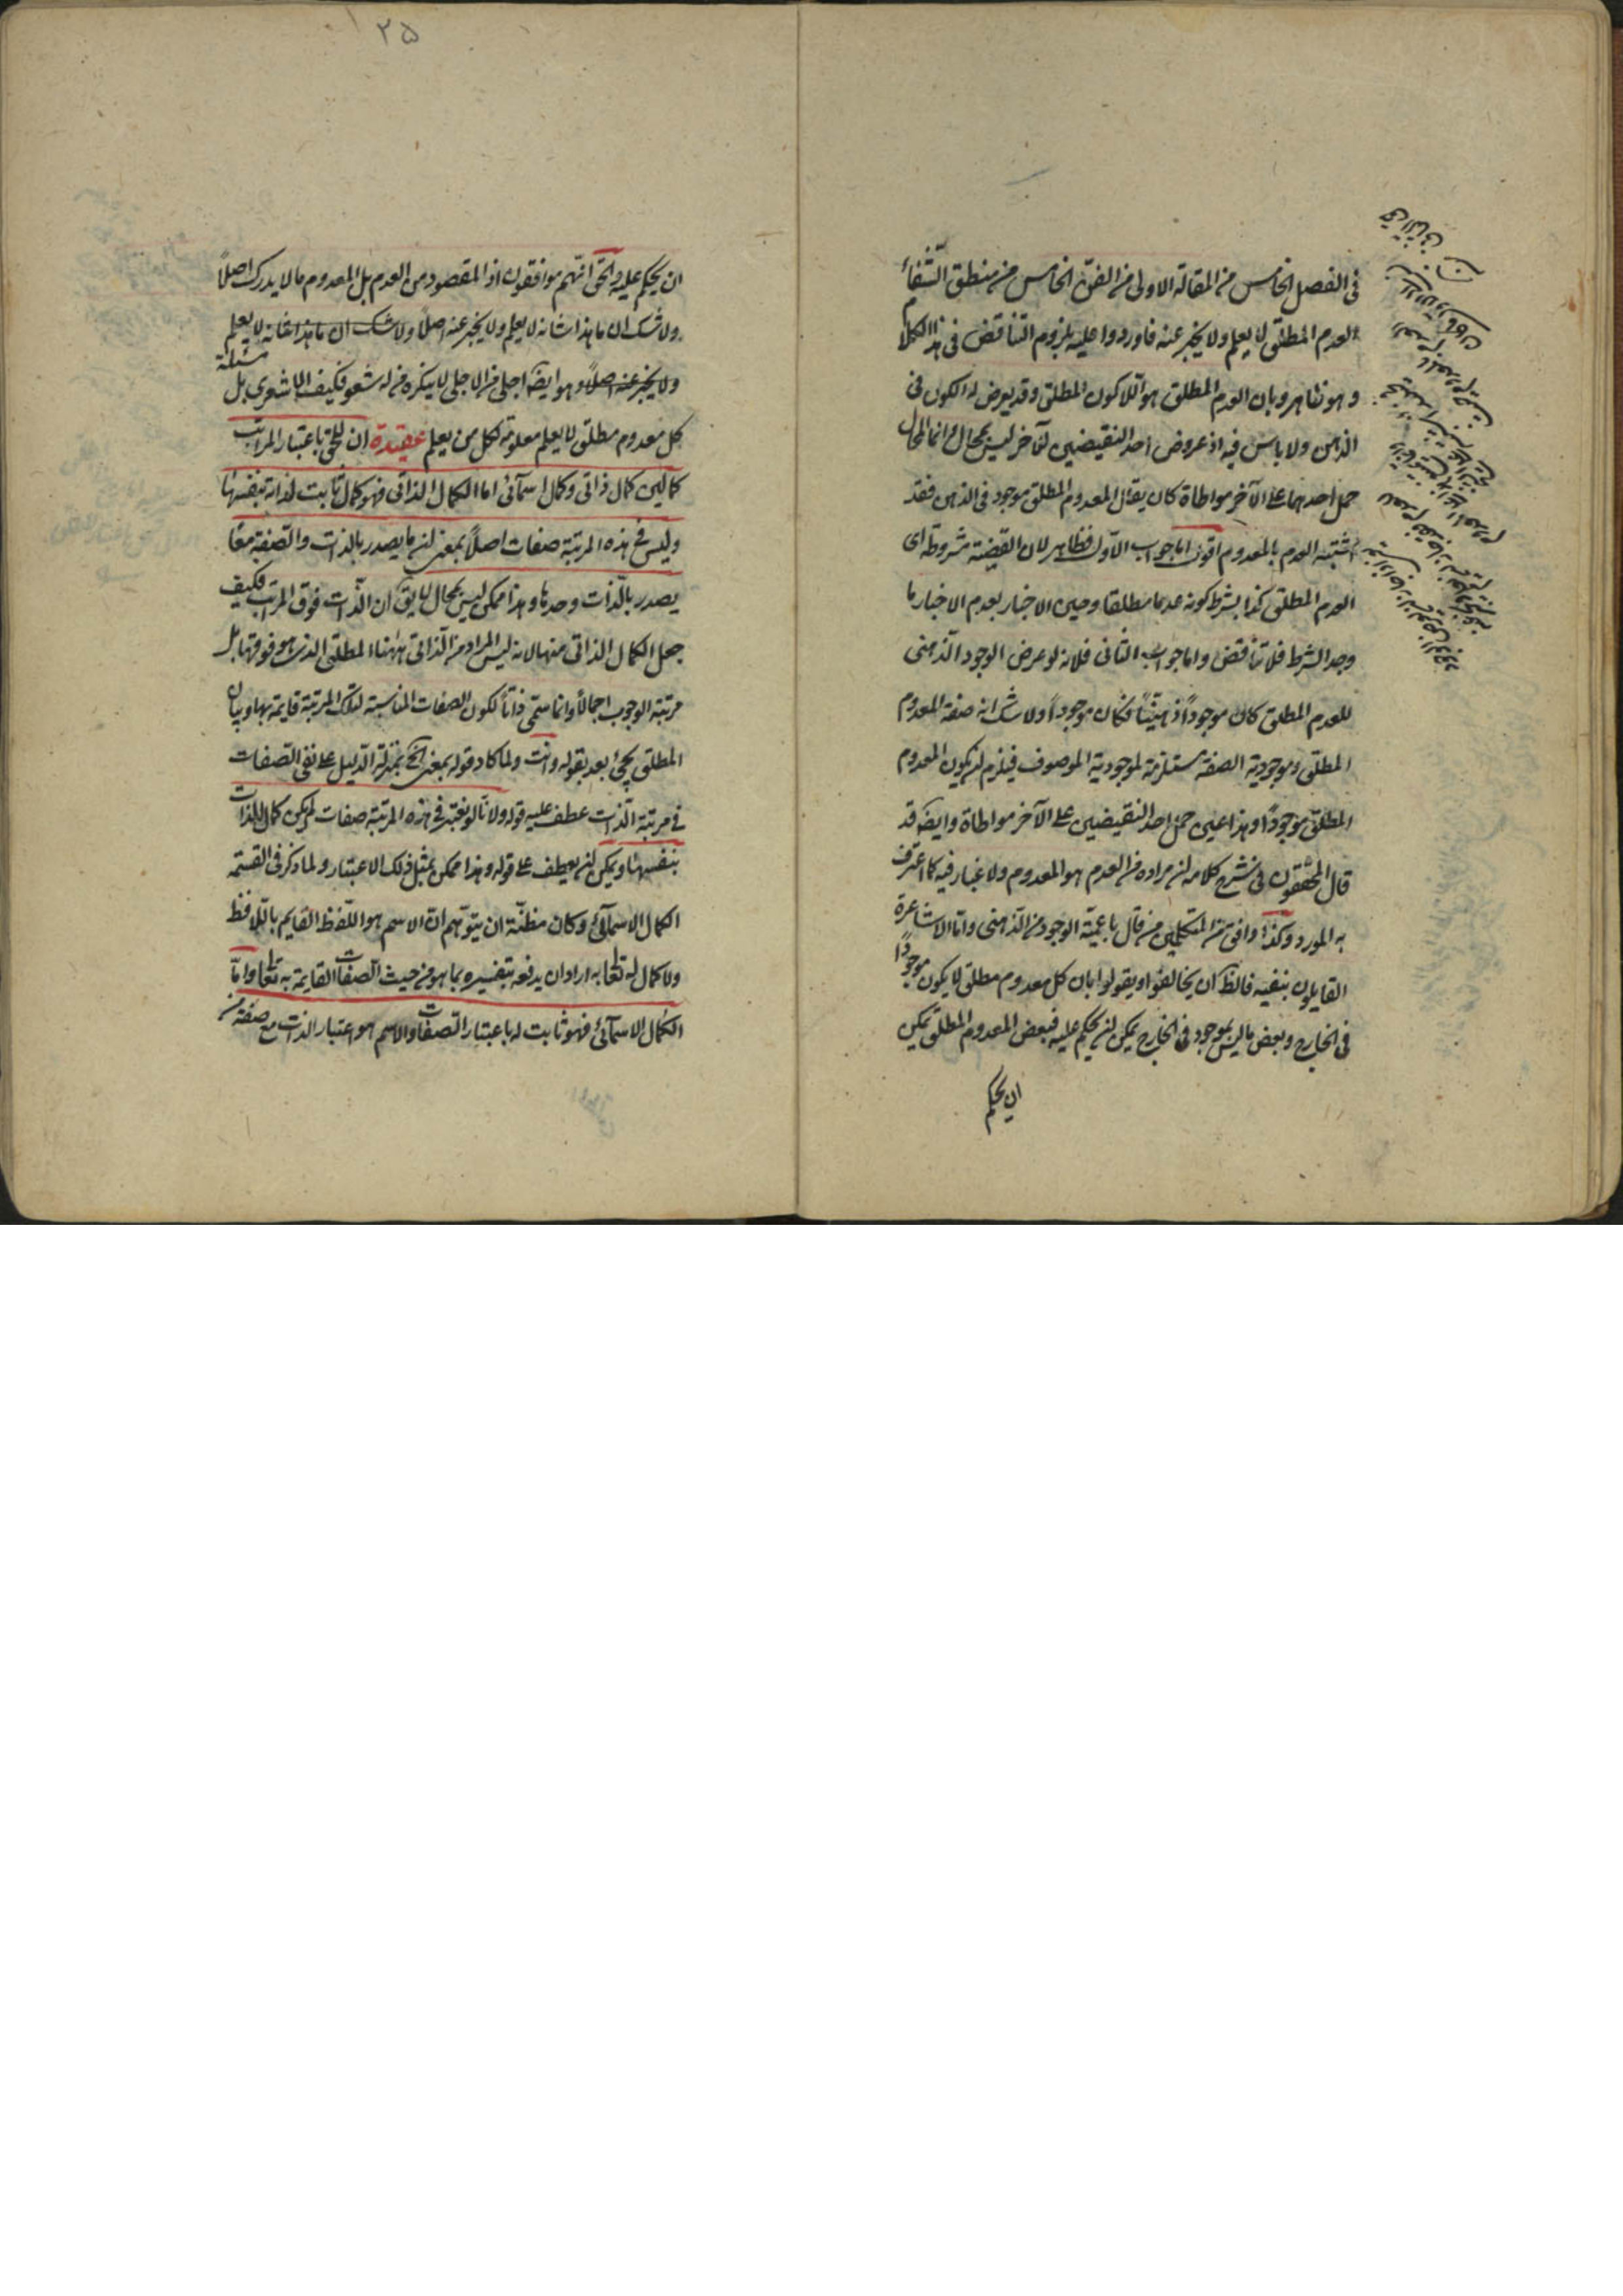 فى الفصل الخامس من المقالة الاولى من الفن الخامس من منطق الشفاء
العدم المطلق لا يعلم ولا يخبر عنه فاوردوا عليه بلزوم التناقض فى هذا الكلام
وهو ظاهر وبان العدم المطلق هو اللاكون المطلق وقد يعرض له الكون فى
الذهن ولا باس فيه اذ عروض احد النقيضين للآخر ليس بمحال وانما المحال
حمل احدهما على الآخر مواطاة كان يقال المعدوم المطلق موجود فى الذهن فقد
اشتبه العدم بالمعدوم اقول اما جواب الاول فظاهر لان القضية مشروطة اى
العدم المطلق كذا بشرط كونه عدما مطلقا وحين الاخبار بعدم الاخبار ما
وجد الشرط فلا تناقض واما جواب الثانى فلانه لو عرض الوجود الذهنى
للعدم المطلق كان موجوداً ذهنيّاً فكان موجوداً ولا شك انه صفة المعدوم
المطلق وموجودية الصفة مستلزمة لموجودية الموصوف فيلزم ان يكون المعدوم
المطلق موجوداً وهذا عين حمل احد النقيضين على الآخر مواطاة وايضا قد
قال المحققون فى شرح كلامه ان مراده من العدم هو المعدوم ولا غبار فيه كما اعترف
به المورد وكذا وافق من المتكلمين من قال باعمية الوجود من الذهنى واما الاشاعرة
القايلون بنفيه فالظ ان يخالفوا ويقولوا بان كل معدوم مطلق لا يكون موجوداً
فى الخارج وبعض ما ليس بموجود فى الخارج يمكن ان يحكم عليه فبعض المعدوم المطلق يمكن
ان يحكم
٢٥
ان يحكم عليه والحق انهم موافقون اذ المقصود من العدم بل المعدوم ما لا يدرك اصلاً
ولا شك ان ما هذا شانه لا يعلم ولا يخبر عنه اصلا ولا شك ان ما هذا شانه لا يعلم
ولا يخبر عنه اصلاً وهو ايضا اجلى من الاجلى لا ينكره من له شعور فكيف الاشعرى بل مسئلة
كل معدوم مطلق لا يعلم معلومة لكل من يعلم عقيدة ان للحق باعتبار المراتب
كمالين كمال ذاتى وكمال اسمآئى اما الكمال الذاتى فهو كمال ثابت لذاته بنفسها
وليس فى هذه المرتبة صفات اصلاً بمعنى ان ما يصدر بالذات والصفة معاً
يصدر بالذات وحدها وهذا ممكن ليس بمحال لا يق ان الذات فوق المراتب فكيف
جعل الكمال الذاتى منها لانه ليس المراد من الذاتى ههنا المطلق الذى هو فوقها بل
مرتبة الوجوب اجمالاً وانما سمّى ذاتاً لكون الصفات المناسبة لتلك المرتبة قايمة بها وبيان
المطلق يجئ بعد بقوله وانت ولما كاد قوله بمعنى الخ بمنزلة الدليل على نفى الصفات
فى مرتبة الذات عطف عليه قوله ولانا لو نعتبر فى هذه المرتبة صفات لم يكن كمال للذات
بنفسها ويمكن ان يعطف على قوله وهذا ممكن بمثل ذلك الاعتبار ولما ذكر فى القسمة
الكمال الاسمآئى وكان مظنّة ان يتوهم ان الاسم هو اللفظ القايم باللافظ
ولا كمال له تعا به اراد ان يدفعه بتفسيره بما هو من حيث الصفات القايمة به تعا واما
الكمال الاسمآئى فهو ثابت له باعتبار الصفات والاسم هو اعتبار الذات مع صفة من